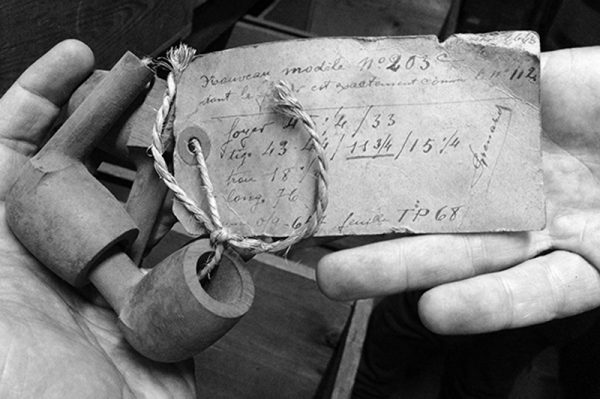 Nouveau modèle n° 203 c
dont le foyer est exactement comme le n° 112
foyer 4 1/4 / 33
tige 43 / 11 3/4 / 15 1/4
trou 18
long. 76
feuille TP 68